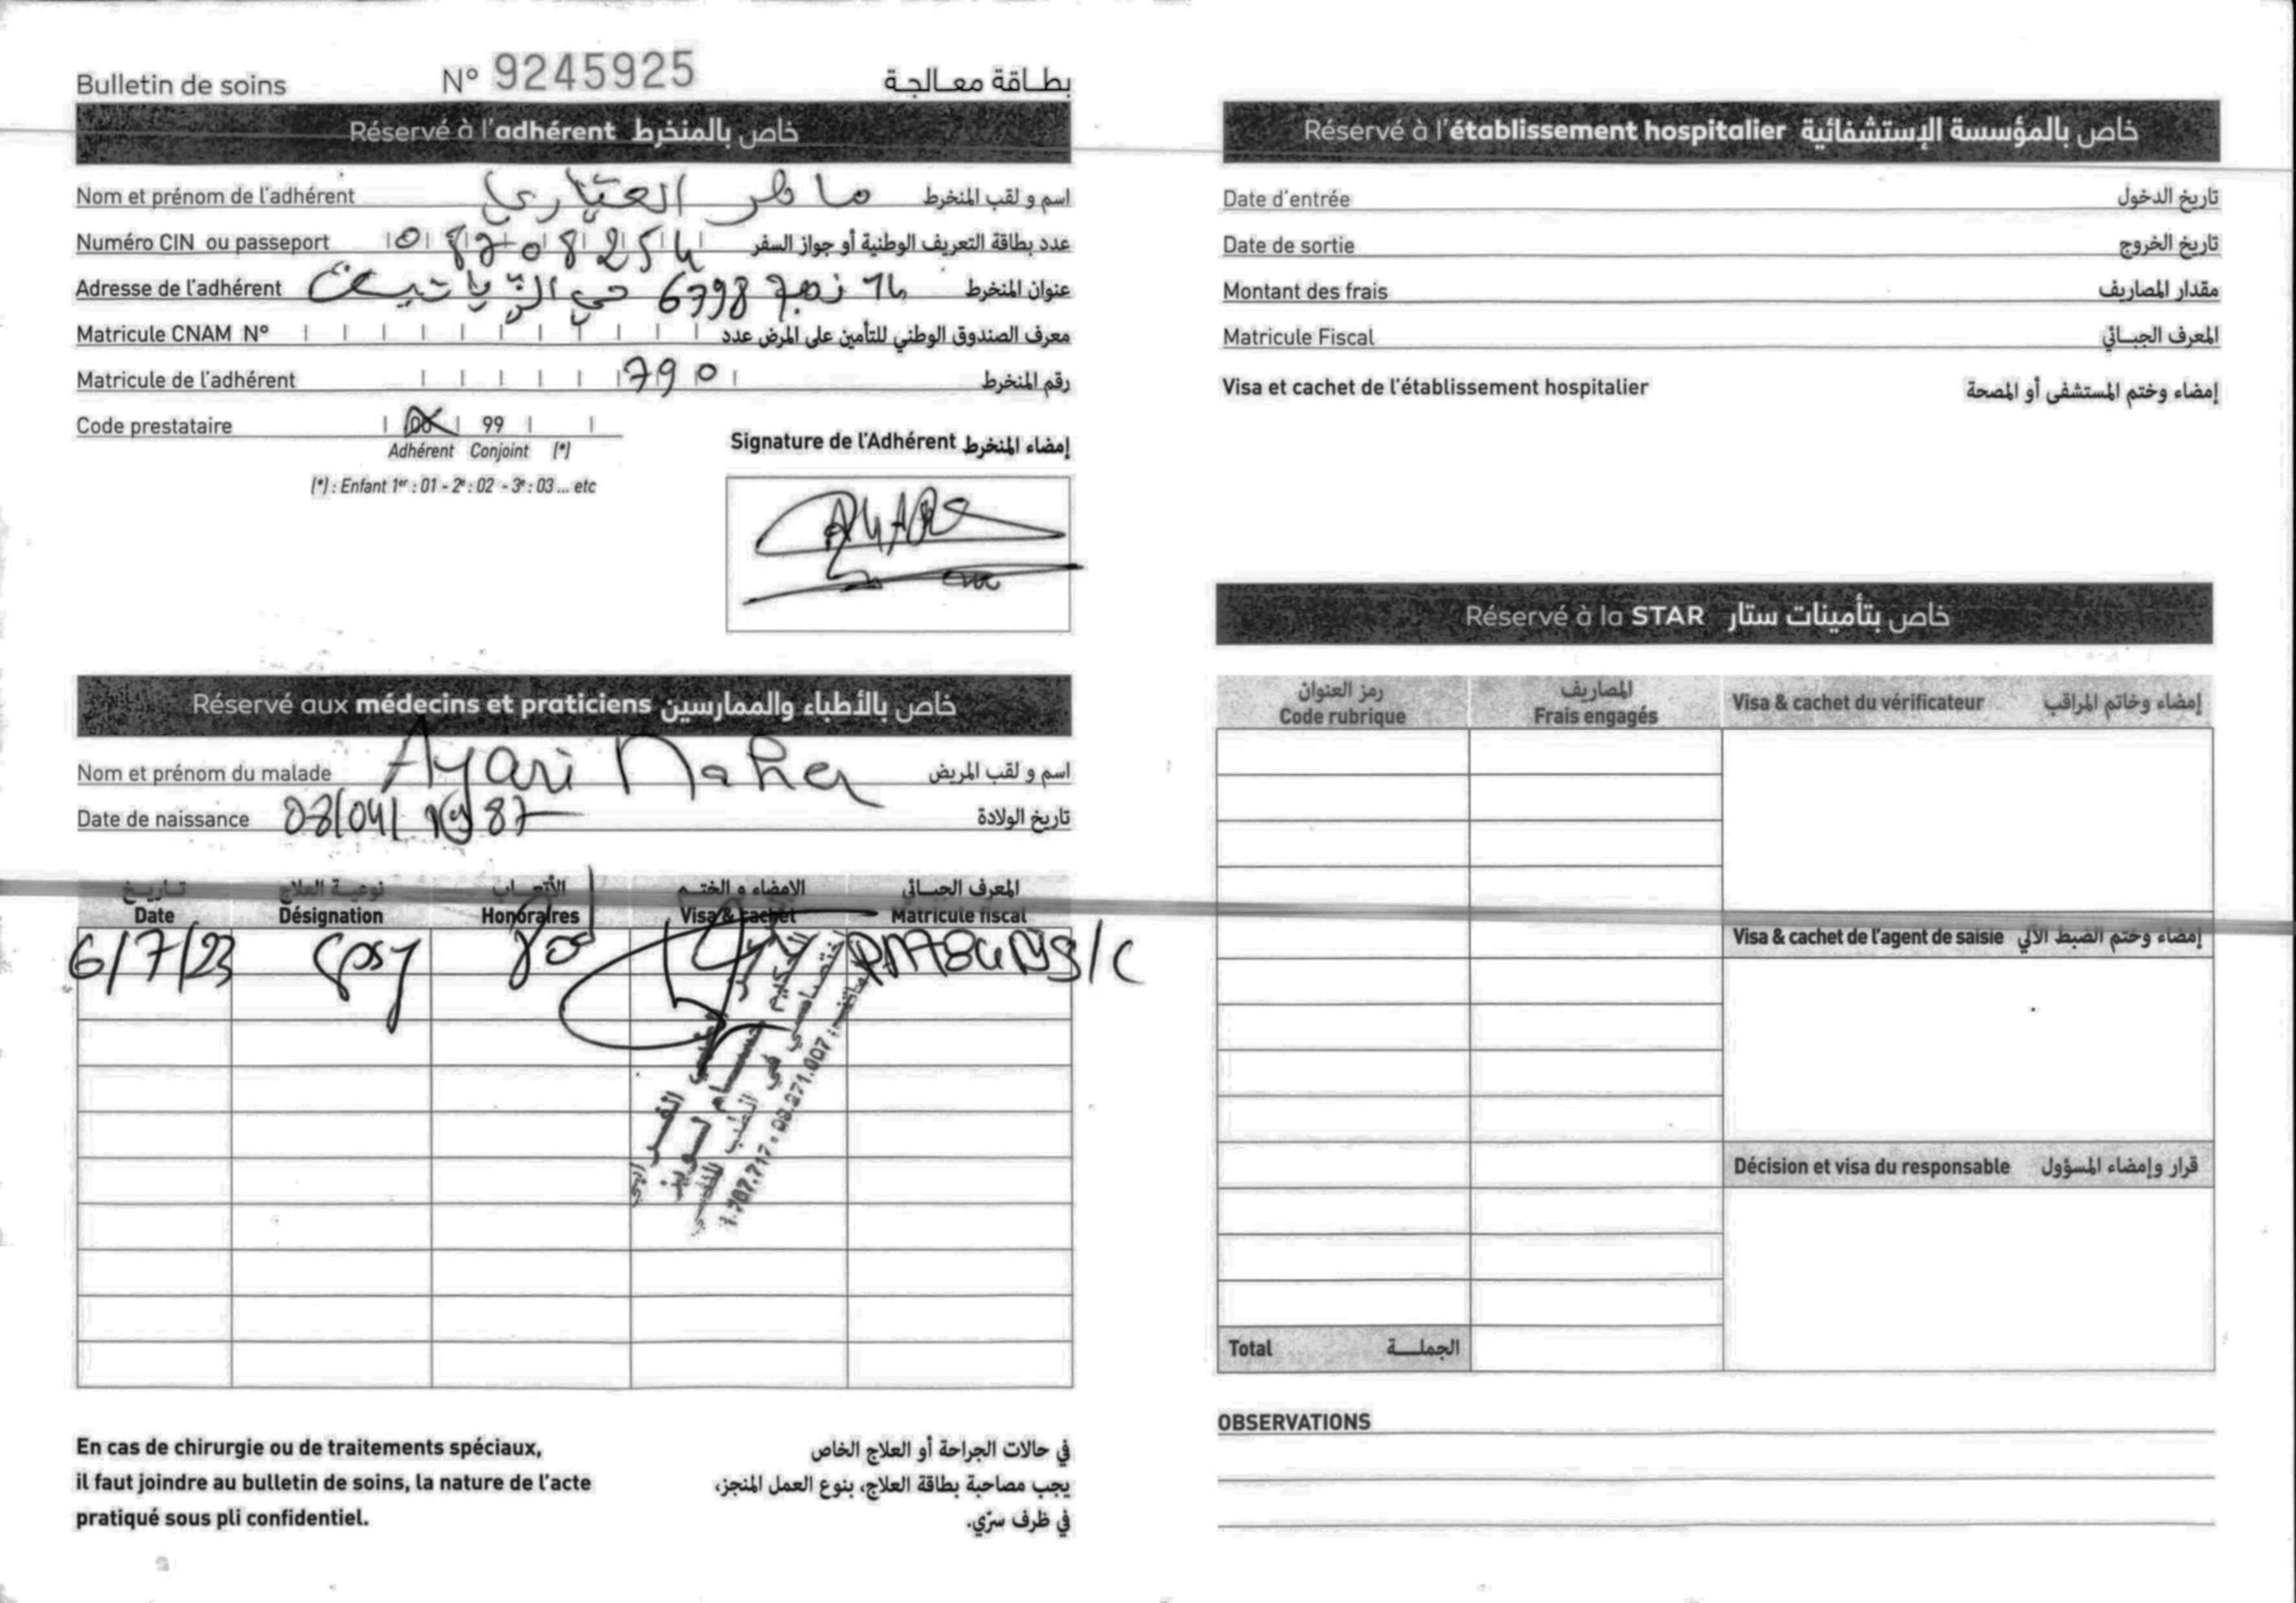 Bulletin de soins N° 9245925 بطاقة معالجة
Réservé à l'adhérent خاص بالمنخرط
Nom et prénom de l'adhérent ماهر العيّاري اسم و لقب المنخرط
Numéro CIN ou passeport 08708254 عدد بطاقة التعريف الوطنية أو جواز السفر
Adresse de l'adhérent 14 نهج 6798 حي عنوان المنخرط
Matricule CNAM N° معرف الصندوق الوطني للتأمين على المرض عدد
Matricule de l'adhérent 790 رقم المنخرط
Code prestataire 00 99
Adhérent Conjoint (*)
(*) : Enfant 1er : 01 - 2e : 02 - 3e : 03 ... etc
Signature de l'Adhérent إمضاء المنخرط
Réservé aux médecins et praticiens خاص بالأطباء والممارسين
Nom et prénom du malade Ayari Maher اسم و لقب المريض
Date de naissance 08/04/1987 تاريخ الولادة
تاريخ نوعية العلاج الأتعاب الامضاء و الختم المعرف الجبائي
Date Désignation Honoraires Visa & cachet Matricule fiscal
6/7/23
الحكيم
اختصاصي في الطب النفسي
En cas de chirurgie ou de traitements spéciaux,
il faut joindre au bulletin de soins, la nature de l'acte
pratiqué sous pli confidentiel.
في حالات الجراحة أو العلاج الخاص
يجب مصاحبة بطاقة العلاج، بنوع العمل المنجز،
في ظرف سرّي.
Réservé à l'établissement hospitalier خاص بالمؤسسة الإستشفائية
Date d'entrée تاريخ الدخول
Date de sortie تاريخ الخروج
Montant des frais مقدار المصاريف
Matricule Fiscal المعرف الجبائي
Visa et cachet de l'établissement hospitalier إمضاء وختم المستشفى أو المصحة
Réservé à la STAR خاص بتأمينات ستار
رمز العنوان المصاريف
Code rubrique Frais engagés Visa & cachet du vérificateur إمضاء وخاتم المراقب
Visa & cachet de l'agent de saisie إمضاء وختم الضبط الآلي
Décision et visa du responsable قرار وإمضاء المسؤول
Total الجملة
OBSERVATIONS